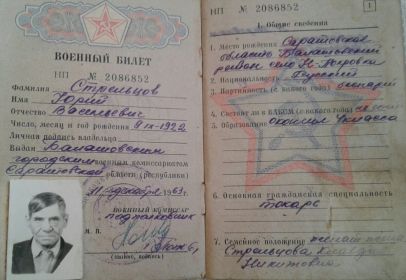 ВОЕННЫЙ БИЛЕТ
НП № 2086852
Фамилия Стрельцов
Имя Юрий
Отчество Васильевич
Число, месяц и год рождения 9 IX-1922
Личная подпись владельца
Выдан Балашовским
городским военным комиссариатом
Саратовской области (республики)
31 декабря 1963 г.
Военный комиссар
подполковник
М. П.
(звание, подпись)
НП № 2086852
1
I. Общие сведения
1. Место рождения Саратовская
область Балашовский
район село
2. Национальность Русский
3. Партийность (с какого года)
4. Состоит ли в ВЛКСМ (с какого года)
5. Образование окончил 7 классов
6. Основная гражданская специальность
токарь
7. Семейное положение женат жена
Стрельцова
Никитовна